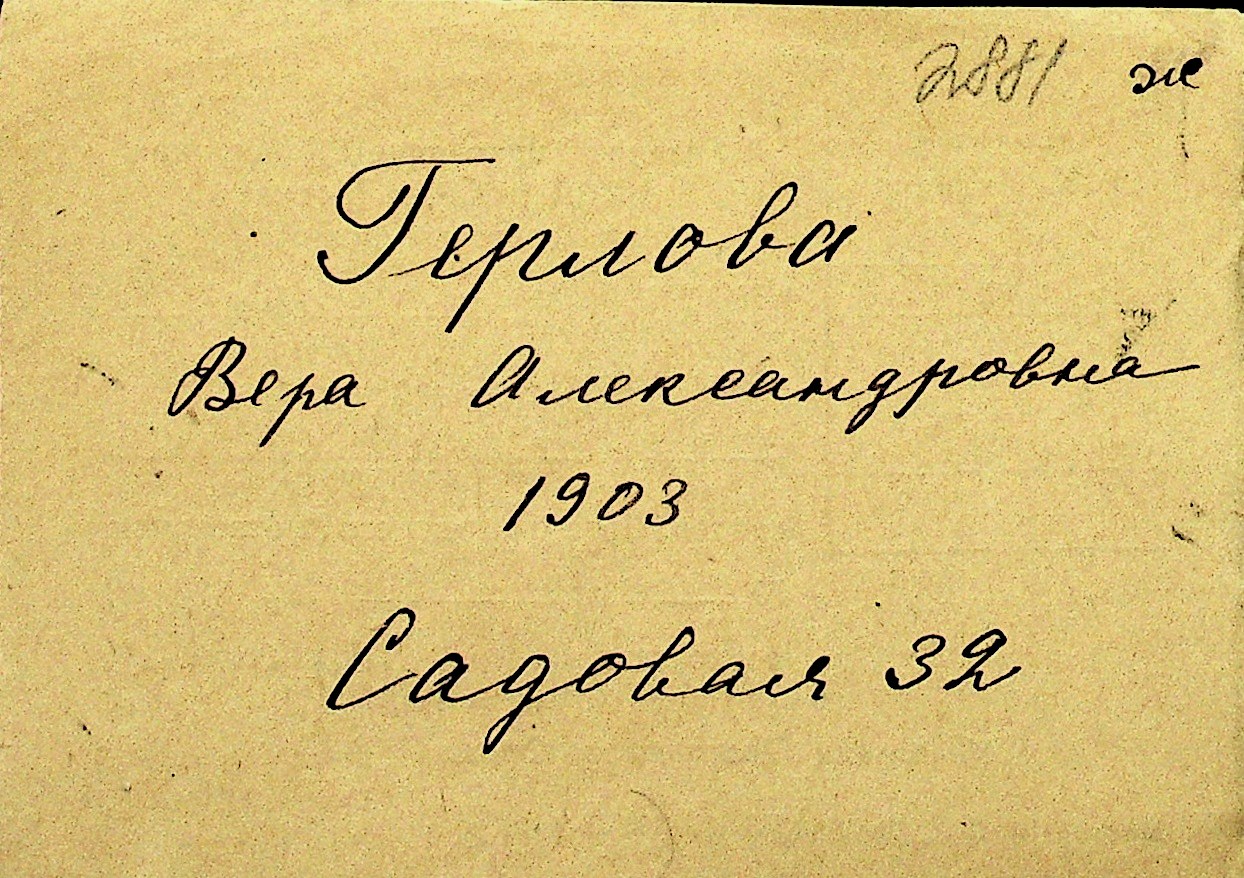 2881 ж
Герлова
Вера Александровна
1903
Садовая 32